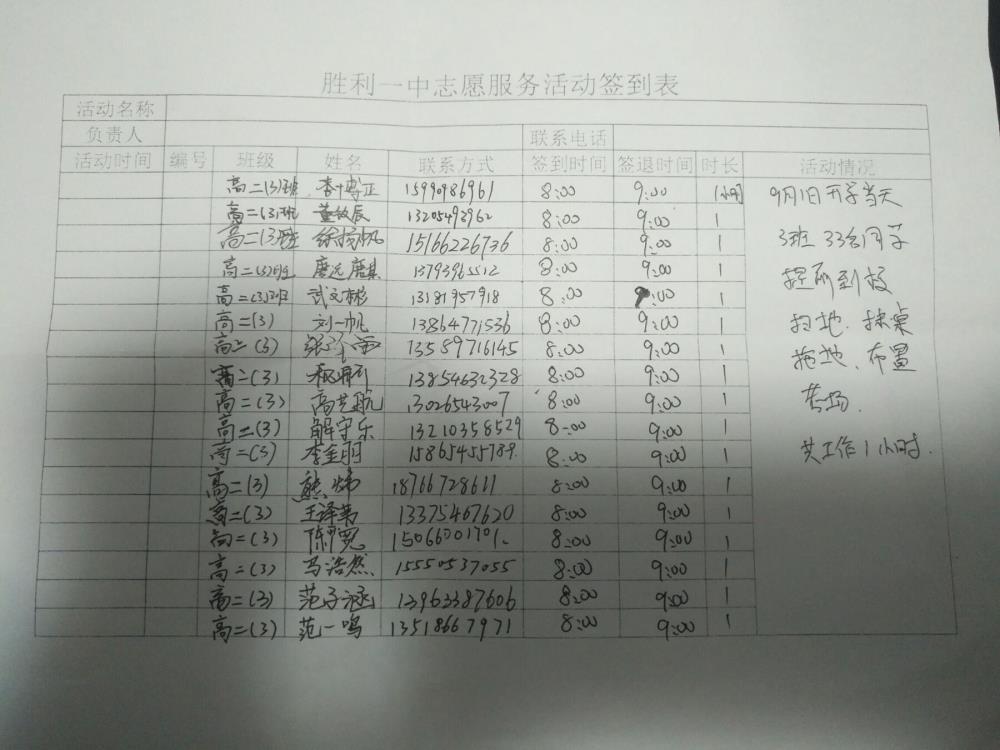 胜利一中志愿服务活动签到表
活动名称
负责人 联系电话
活动时间 编号 班级 姓名 联系方式 签到时间 签退时间 时长 活动情况
高二(3)班 李博正 15990986961 8:00 9:00 1小时 9月1日开学当天
高二(3)班 董敏辰 13205493962 8:00 9:00 1
高二(3)班 徐扬帆 15166226736 8:00 9:00 1 3班 33名同学
高二(3)班 8:00 9:00 1
高二(3)班 武文彬 13181957918 8:00 9:00 1 提前到校
高二(3) 刘一帆 13864771536 8:00 9:00 1 扫地、抹桌
高二(3) 13589716145 8:00 9:00 1 拖地、布置
高二(3) 13854632328 8:00 9:00 1
高二(3) 高艺航 13026543007 8:00 9:00 1 考场.
高二(3) 解守乐 13210358529 8:00 9:00 1
高二(3) 李金羽 15865455789 8:00 9:00 1 共工作1小时.
高二(3) 熊炜 18766728611 8:00 9:00 1
高二(3) 王译苇 13375467620 8:00 9:00 1
高二(3) 8:00 9:00 1
高二(3) 马浩然 15550537055 8:00 9:00 1
高二(3) 范子涵 13963387606 8:00 9:00 1
高二(3) 范一鸣 13518667971 8:00 9:00 1